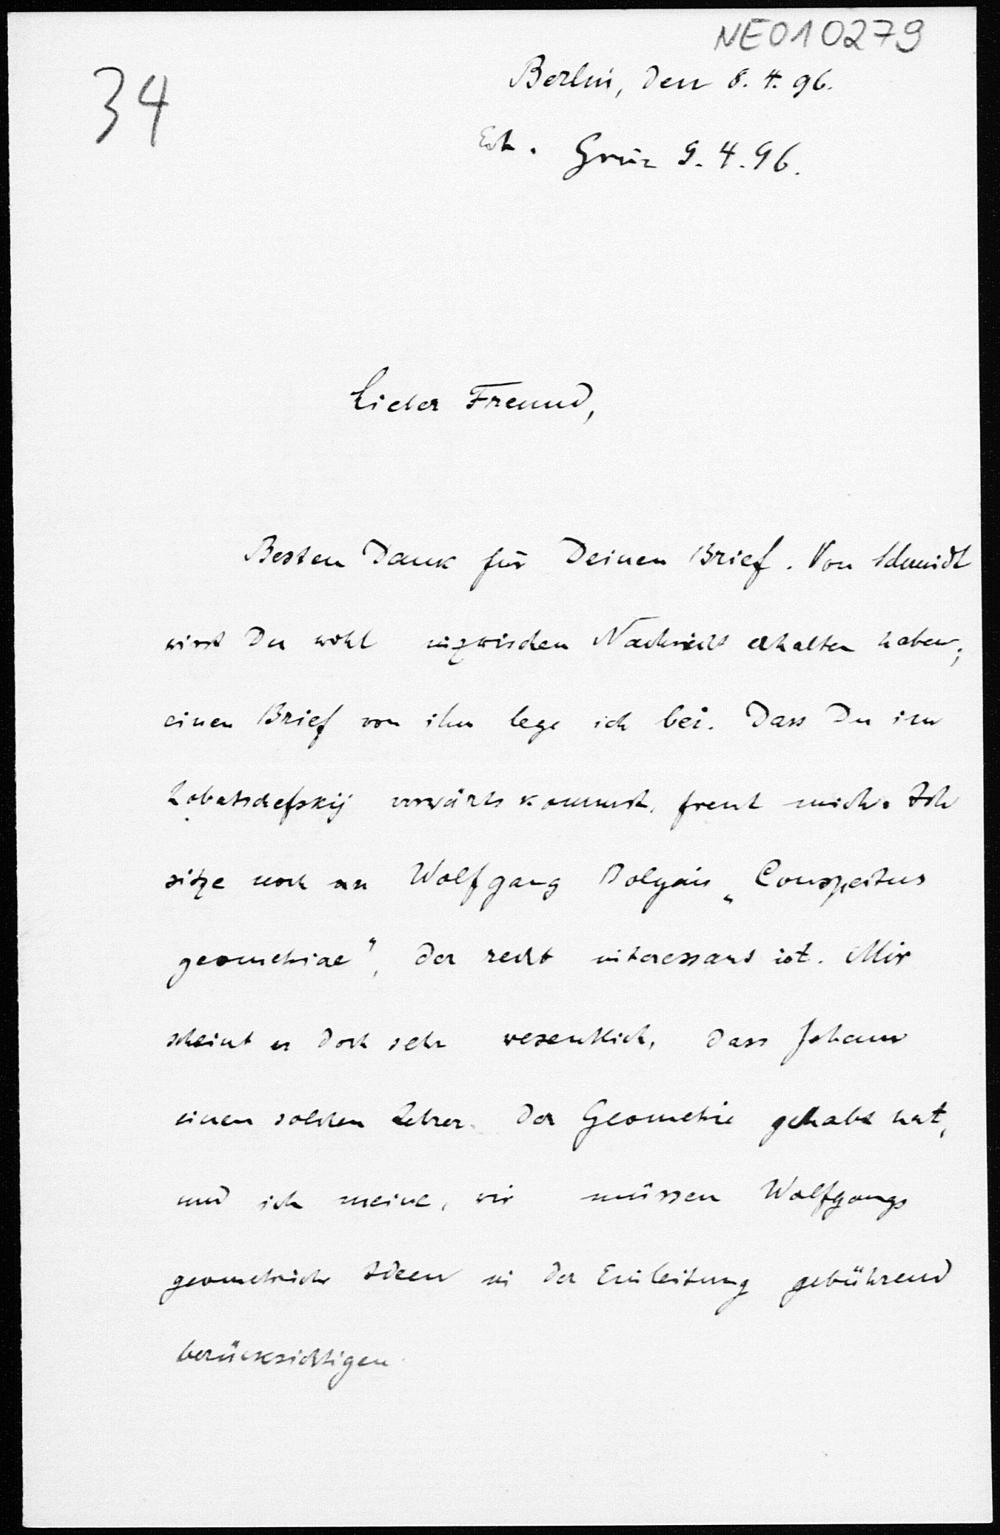 NE010279
34
Berlin, den 8. 4. 96.
Erh. 9. 4. 96.
Lieber Freund,
Besten Dank für Deinen Brief. Von Schmidt
wirst Du wohl inzwischen Nachricht erhalten haben;
einen Brief von ihm lege ich bei. Dass Du im
Lobatschefskij vorwärts kommst, freut mich. Ich
sitze noch an Wolfgang Bolyais „Conspectus
geometriae", der recht interessant ist. Mir
scheint es doch sehr wesentlich, dass Johann
einen solchen Lehrer der Geometrie gehabt hat,
und ich meine, wir müssen Wolfgangs
geometrische Ideen in der Einleitung gebührend
berücksichtigen